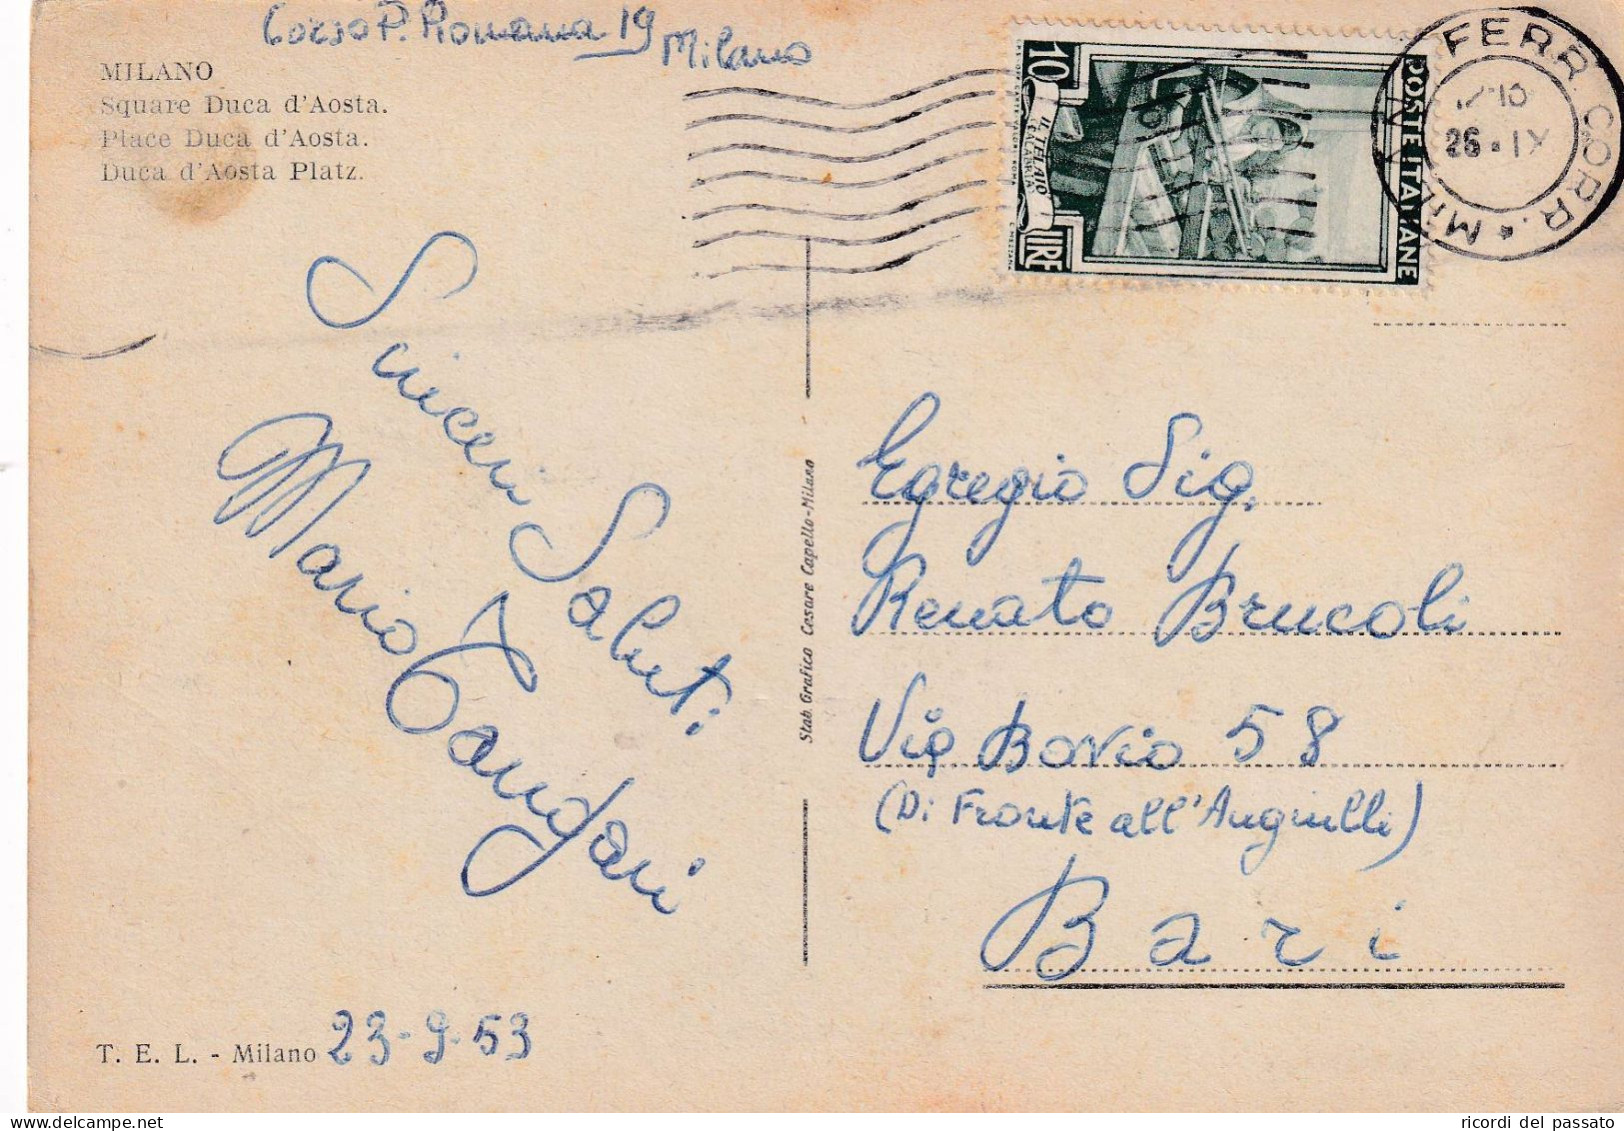 Corso P. Romana 19
Milano
MILANO
Square Duca d'Aosta.
Place Duca d'Aosta.
Duca d'Aosta Platz.
10
LIRE
IL TELAIO
CALABRIA
POSTE ITALIANE
MILANO FERR. CORR. *
26 • IX
Sinceri Saluti
Mario
Stab. Grafico Cesare Capello - Milano
Egregio Sig.
Renato Brucoli
Via Bovio 58
(Di Fronte all'Anguilli)
Bari
T. E. L. - Milano
23-9-53
ricordi del passato